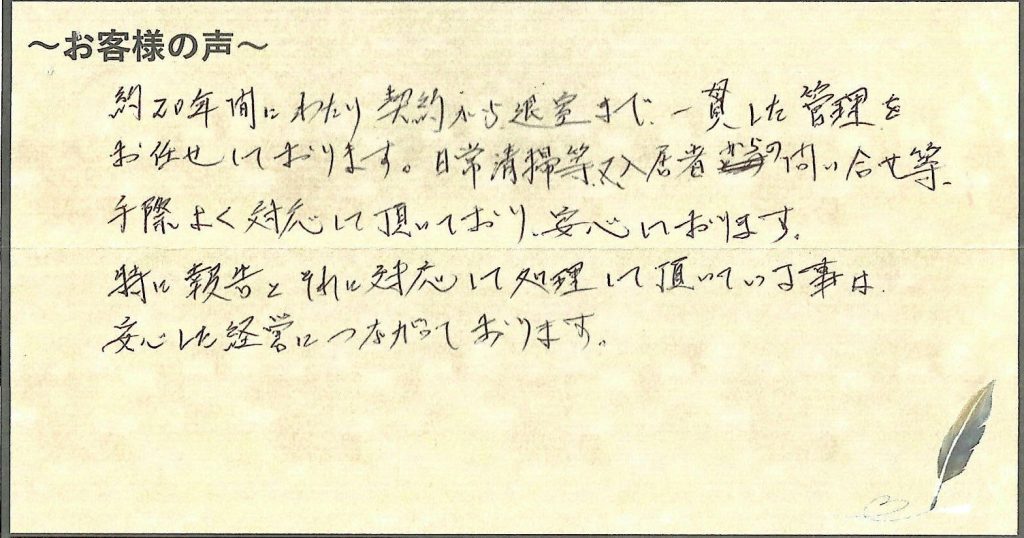 ～お客様の声～
約20年間にわたり契約から退室まで、一貫した管理を
お任せしております。日常清掃等、又、入居者からの問い合せ等、
手際よく対応して頂いており、安心しております。
特に報告とそれに対応して処理して頂いている事は
安心した経営につながっております。